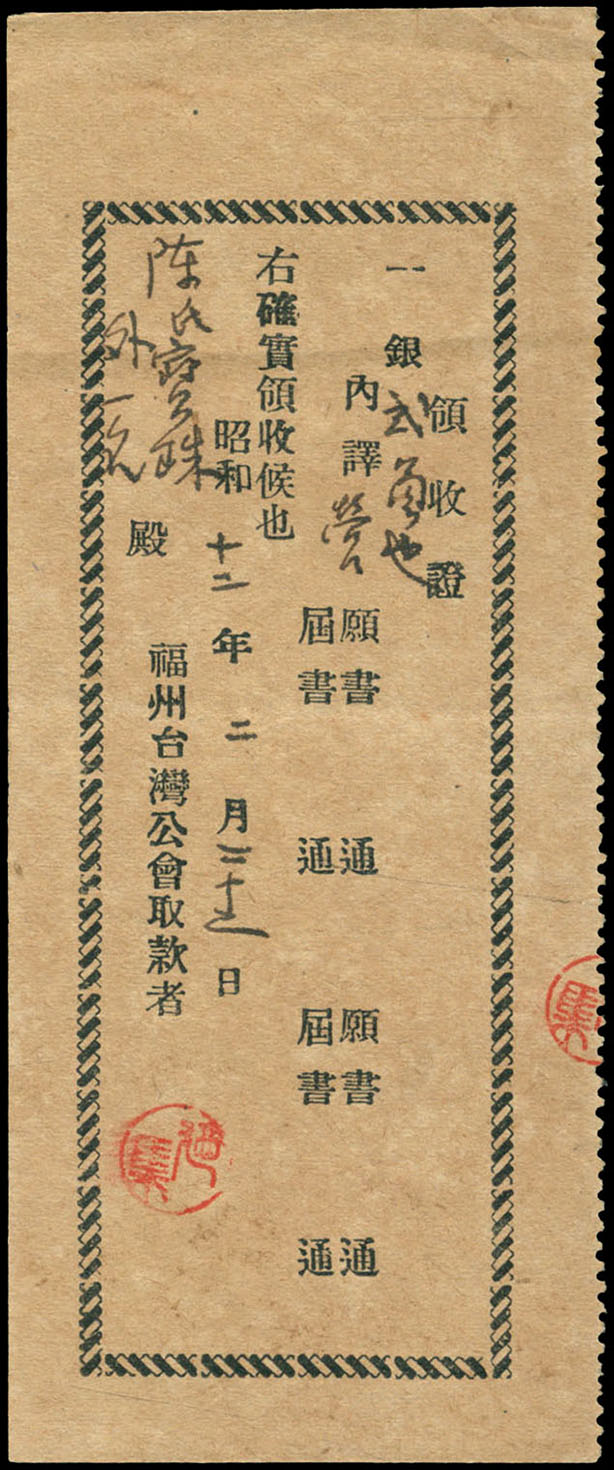 領收證
一銀弍角也
內譯
營
願書 通 願書 通
屆書 通 屆書 通
右確實領收候也
昭和十二年二月二十 日
福州台灣公會取款者
陳氏寶珠
外一名
殿